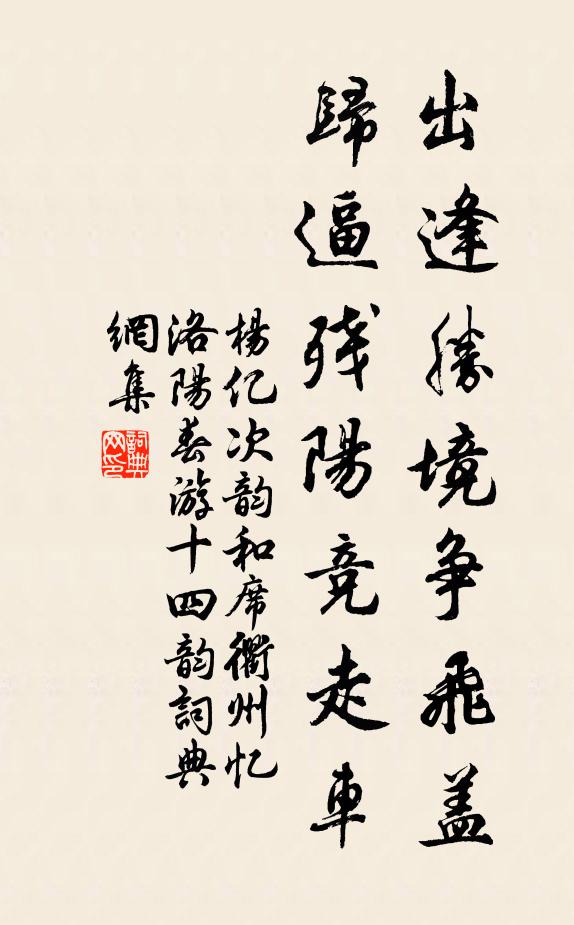 出逢勝境争飛盖
歸逼残陽竞走車
楊亿次韵和席衢州忆
洛陽春游十四韵詞典
網集
詞典
网印